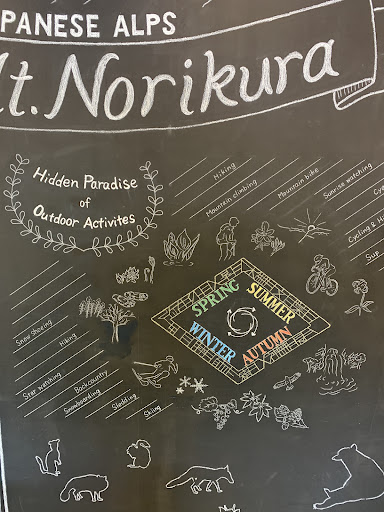 PANESE ALPS
t. Norikura
Hidden Paradise
of
Outdoor Activites
Hiking
Mountain climbing
Mountain bike
Sunrise watching
Cycling & Hi
Sup
SPRING
SUMMER
WINTER
AUTUMN
Snow shoeing
Hiking
Star watching
Backcountry
Snowboarding
Sledding
Skiing